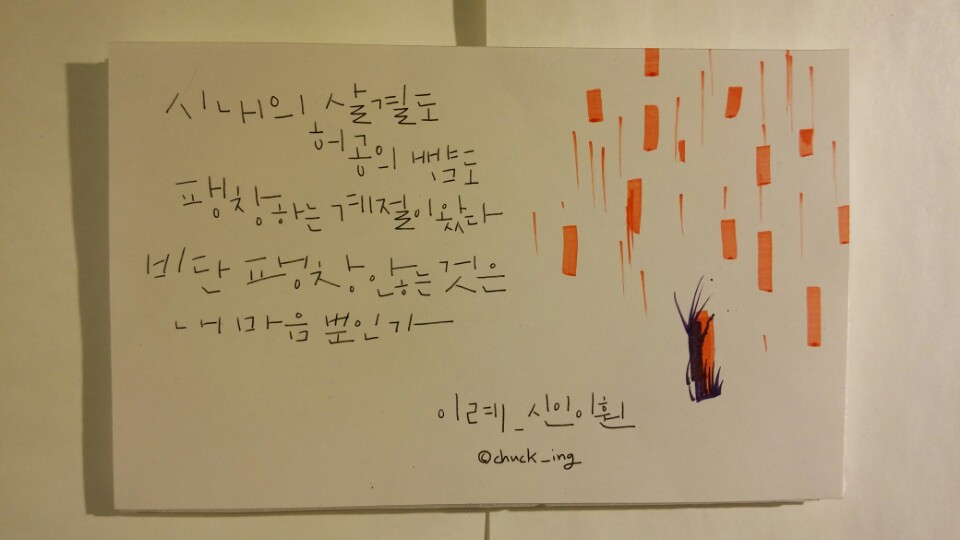 시내의 살결도
허공의 뺨도
팽창하는 계절이 왔다
비단 팽창 않는 것은
내 마음 뿐인가
이례_시인 이훤
©chuck_ing